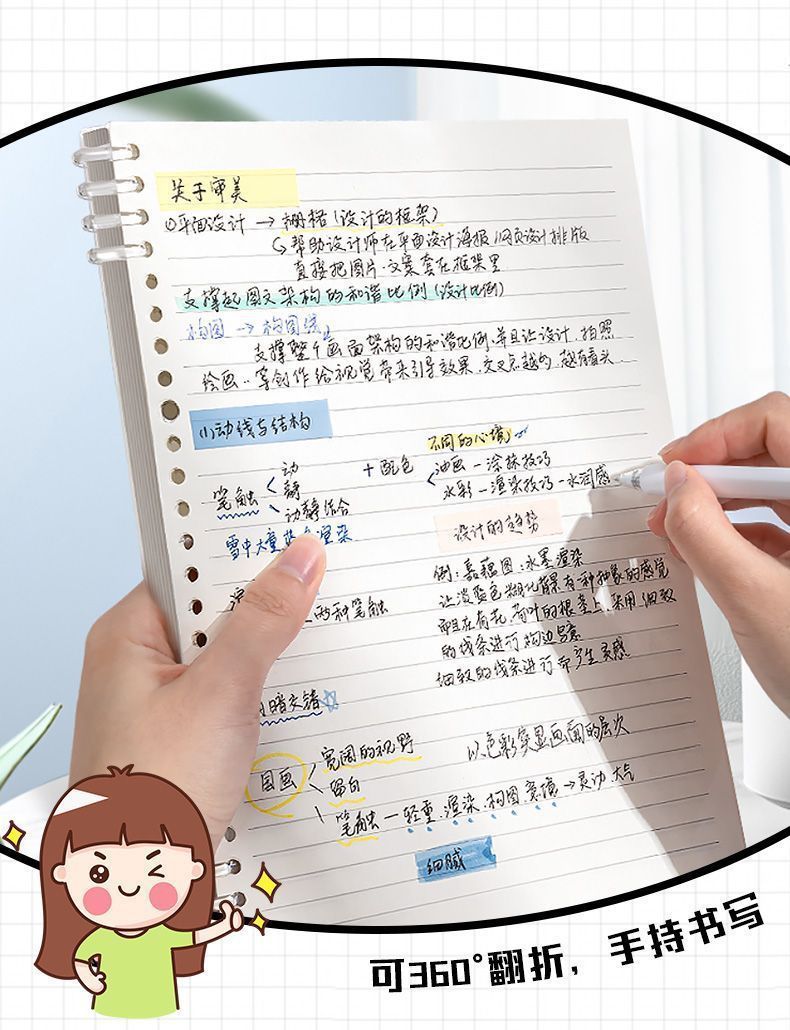 关于审美
①平面设计 → 栅格(设计的框架)
↳帮助设计师在平面设计海报、网页设计排版
直接把图片、文案套在框架里
支撑起图文架构的和谐比例(设计比例)
构图 → 构图线
支撑整个画面架构的和谐比例,并且让设计、拍照
绘画..等创作给视觉带来引导效果,交叉点越多,越有看头
(1)动线与结构
不同的心境
笔触 动 静 动静结合
+ 配色
油画 - 涂抹技巧
水彩 - 渲染技巧 - 水润感
设计的趋势
雪中大量 渲染
例:嘉蕴图:水墨渲染
让淡蓝色糊化背景有一种抽象的感觉
而且在荷花、荷叶的根茎上,采用细致
的线条进行构边写意
细致的线条进行而产生灵感
两种笔触
暗交错
国画 宽阔的视野
留白
笔触 - 轻重、渲染、构图、意境 → 灵动、大气
以色彩突显画面的层次
细腻
可360°翻折,手持书写